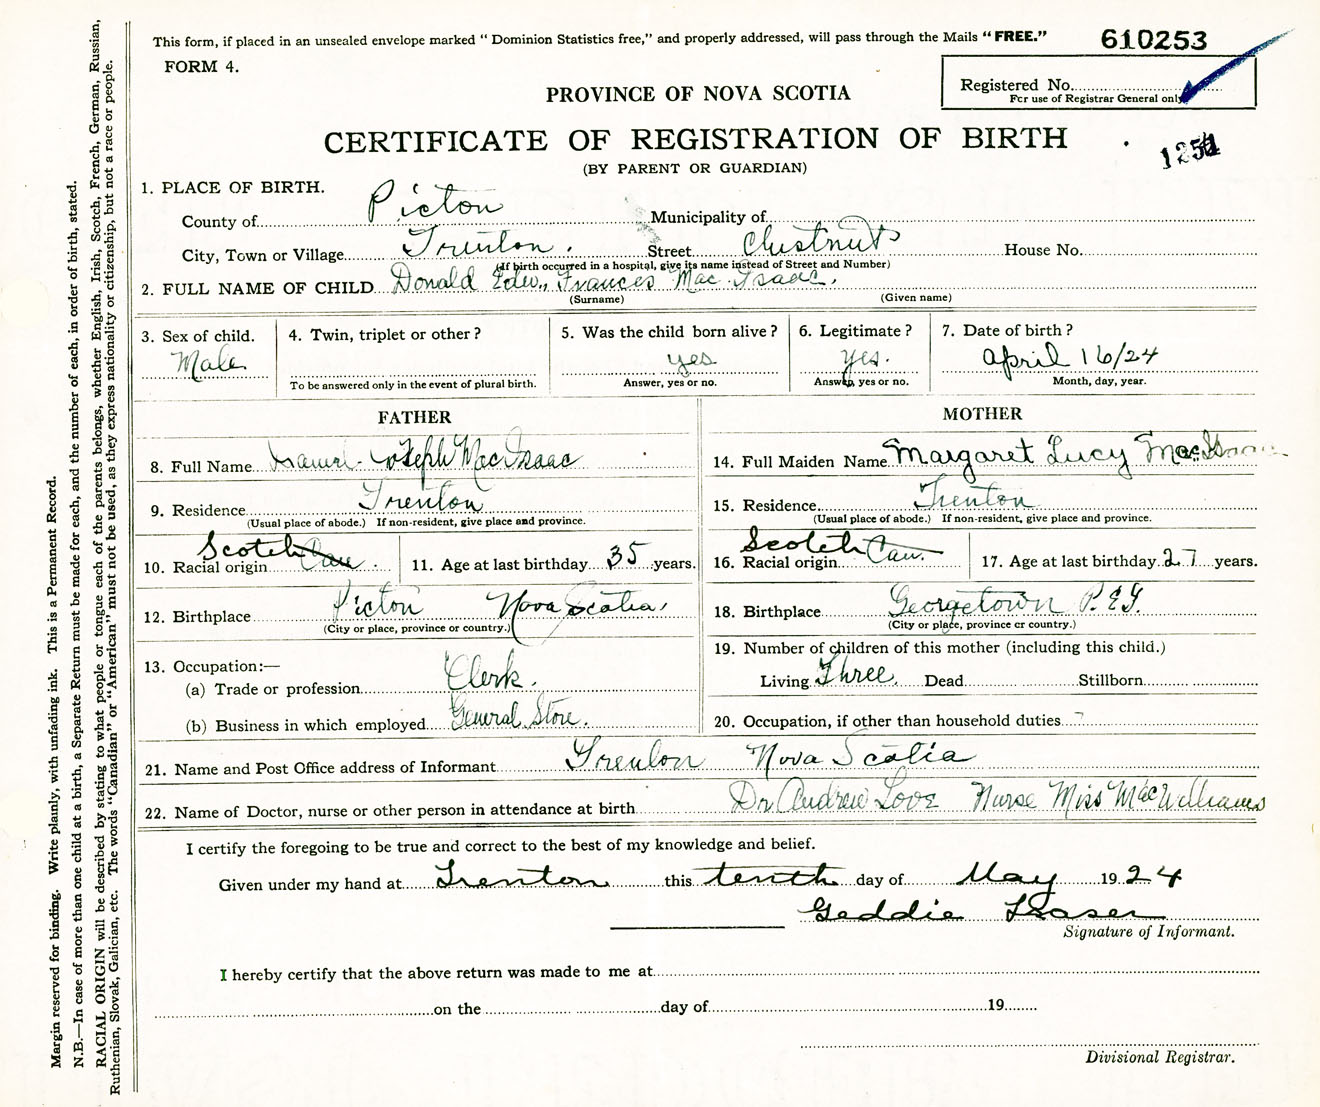 This form, if placed in an unsealed envelope marked “ Dominion Statistics free,” and properly addressed, will pass through the Mails “ FREE.”
610253
FORM 4.
Registered No.
For use of Registrar General only
PROVINCE OF NOVA SCOTIA
CERTIFICATE OF REGISTRATION OF BIRTH
(BY PARENT OR GUARDIAN)
1. PLACE OF BIRTH.
County of Picton Municipality of
City, Town or Village Trenton. Street Chestnut House No.
(If birth occurred in a hospital, give its name instead of Street and Number)
2. FULL NAME OF CHILD Donald Edw. Frances Mac Isaac.
(Surname) (Given name)
3. Sex of child. 4. Twin, triplet or other ? 5. Was the child born alive ? 6. Legitimate ? 7. Date of birth ?
Male yes yes. april 16/24
To be answered only in the event of plural birth. Answer, yes or no. Answer, yes or no. Month, day, year.
FATHER MOTHER
8. Full Name Joseph MacIsaac 14. Full Maiden Name Margaret Lucy MacIsaac
9. Residence Trenton 15. Residence Trenton
(Usual place of abode.) If non-resident, give place and province. (Usual place of abode.) If non-resident, give place and province.
10. Racial origin Scotch Can. 11. Age at last birthday 35 years. 16. Racial origin Scotch Can. 17. Age at last birthday 27 years.
12. Birthplace Picton Nova Scotia, 18. Birthplace Georgetown P.E.I.
(City or place, province or country.) (City or place, province or country.)
13. Occupation:— 19. Number of children of this mother (including this child.)
(a) Trade or profession Clerk. Living Three. Dead Stillborn
(b) Business in which employed General Store. 20. Occupation, if other than household duties
21. Name and Post Office address of Informant Trenton Nova Scotia
22. Name of Doctor, nurse or other person in attendance at birth Dr Andrew Love Nurse Miss MacWilliams
I certify the foregoing to be true and correct to the best of my knowledge and belief.
Given under my hand at Trenton this tenth day of May 1924
Geddie Fraser
Signature of Informant.
I hereby certify that the above return was made to me at
on the day of 19
Divisional Registrar.
Margin reserved for binding. Write plainly, with unfading ink. This is a Permanent Record.
N.B.—In case of more than one child at a birth, a Separate Return must be made for each, and the number of each, in order of birth, stated.
RACIAL ORIGIN will be described by stating to what people or tongue each of the parents belongs, whether English, Irish, Scotch, French, German, Russian,
Ruthenian, Slovak, Galician, etc. The words “Canadian” or “American” must not be used, as they express nationality or citizenship, but not a race or people.